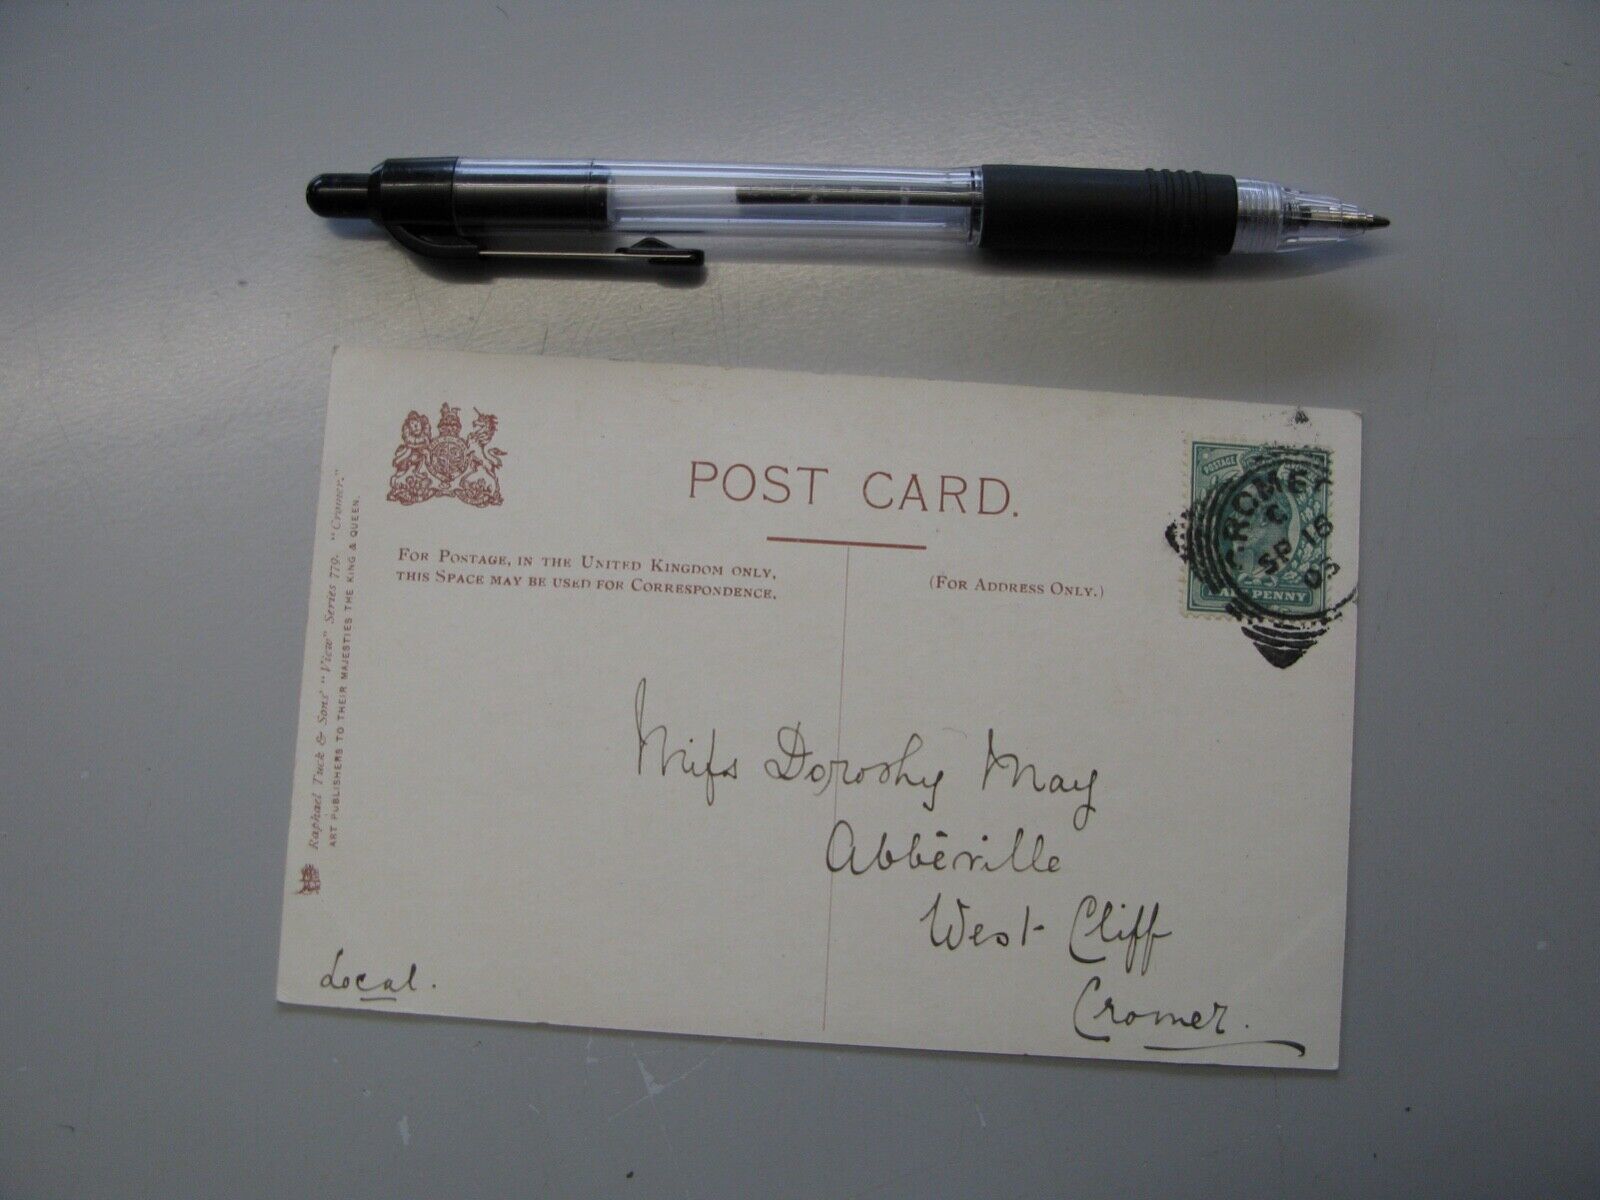 POST CARD.
FOR POSTAGE, IN THE UNITED KINGDOM ONLY,
THIS SPACE MAY BE USED FOR CORRESPONDENCE.
(FOR ADDRESS ONLY.)
Raphael Tuck & Sons' "View" Series 779. "Cromer."
ART PUBLISHERS TO THEIR MAJESTIES THE KING & QUEEN.
POSTAGE
CROMER
C
SP 16
03
HALFPENNY
Miſs Dorothy May
Abbéville
West Cliff
Cromer.
Local.